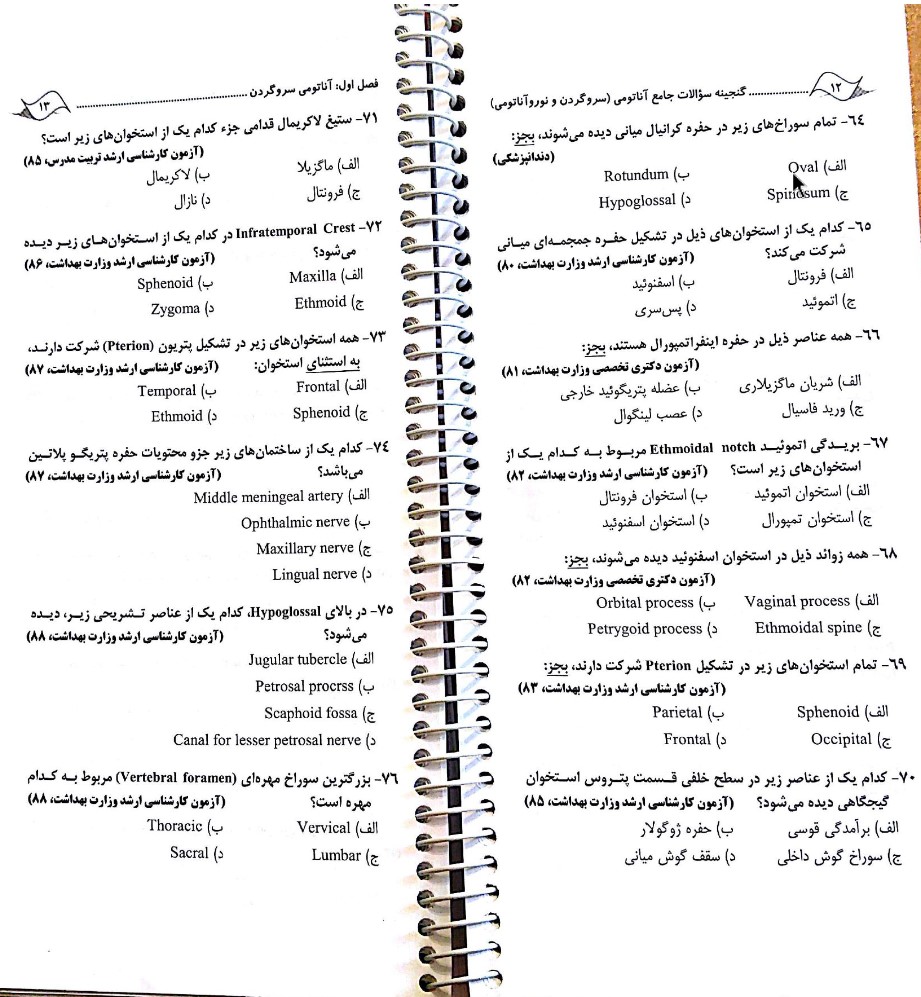 ۱۲
گنجینه سؤالات جامع آناتومی (سروگردن و نوروآناتومی) ....................
۶۴- تمام سوراخ‌های زیر در حفره کرانیال میانی دیده می‌شوند، بجز:
(دندانپزشکی)
الف) Oval ب) Rotundum
ج) Spinosum د) Hypoglossal
۶۵- کدام یک از استخوان‌های ذیل در تشکیل حفره جمجمه‌ای میانی
شرکت می‌کند؟ (آزمون کارشناسی ارشد وزارت بهداشت، ۸۰)
الف) فرونتال ب) اسفنوئید
ج) اتموئید د) پس‌سری
۶۶- همه عناصر ذیل در حفره اینفراتمپورال هستند، بجز:
(آزمون دکتری تخصصی وزارت بهداشت، ۸۱)
الف) شریان ماگزیلاری ب) عضله پتریگوئید خارجی
ج) ورید فاسیال د) عصب لینگوال
۶۷- بریدگی اتموئید Ethmoidal notch مربوط به کدام یک از
استخوان‌های زیر است؟ (آزمون کارشناسی ارشد وزارت بهداشت، ۸۲)
الف) استخوان اتموئید ب) استخوان فرونتال
ج) استخوان تمپورال د) استخوان اسفنوئید
۶۸- همه زوائد ذیل در استخوان اسفنوئید دیده می‌شوند، بجز:
(آزمون دکتری تخصصی وزارت بهداشت، ۸۲)
الف) Vaginal process ب) Orbital process
ج) Ethmoidal spine د) Petrygoid process
۶۹- تمام استخوان‌های زیر در تشکیل Pterion شرکت دارند، بجز:
(آزمون کارشناسی ارشد وزارت بهداشت، ۸۳)
الف) Sphenoid ب) Parietal
ج) Occipital د) Frontal
۷۰- کدام یک از عناصر زیر در سطح خلفی قسمت پتروس استخوان
گیجگاهی دیده می‌شود؟ (آزمون کارشناسی ارشد وزارت بهداشت، ۸۵)
الف) برآمدگی قوسی ب) حفره ژوگولار
ج) سوراخ گوش داخلی د) سقف گوش میانی
فصل اول: آناتومی سروگردن ........................................
۱۳
۷۱- ستیغ لاکریمال قدامی جزء کدام یک از استخوان‌های زیر است؟
(آزمون کارشناسی ارشد تربیت مدرس، ۸۵)
الف) ماگزیلا ب) لاکریمال
ج) فرونتال د) نازال
۷۲- Infratemporal Crest در کدام یک از استخوان‌های زیر دیده
می‌شود؟ (آزمون کارشناسی ارشد وزارت بهداشت، ۸۶)
الف) Maxilla ب) Sphenoid
ج) Ethmoid د) Zygoma
۷۳- همه استخوان‌های زیر در تشکیل پتریون (Pterion) شرکت دارند،
به استثنای استخوان: (آزمون کارشناسی ارشد وزارت بهداشت، ۸۷)
الف) Frontal ب) Temporal
ج) Sphenoid د) Ethmoid
۷۴- کدام یک از ساختمان‌های زیر جزو محتویات حفره پتریگو پلاتین
می‌باشد؟ (آزمون کارشناسی ارشد وزارت بهداشت، ۸۷)
الف) Middle meningeal artery
ب) Ophthalmic nerve
ج) Maxillary nerve
د) Lingual nerve
۷۵- در بالای Hypoglossal، کدام یک از عناصر تشریحی زیر، دیده
می‌شود؟ (آزمون کارشناسی ارشد وزارت بهداشت، ۸۸)
الف) Jugular tubercle
ب) Petrosal procrss
ج) Scaphoid fossa
د) Canal for lesser petrosal nerve
۷۶- بزرگترین سوراخ مهره‌ای (Vertebral foramen) مربوط به کدام
مهره است؟ (آزمون کارشناسی ارشد وزارت بهداشت، ۸۸)
الف) Vervical ب) Thoracic
ج) Lumbar د) Sacral